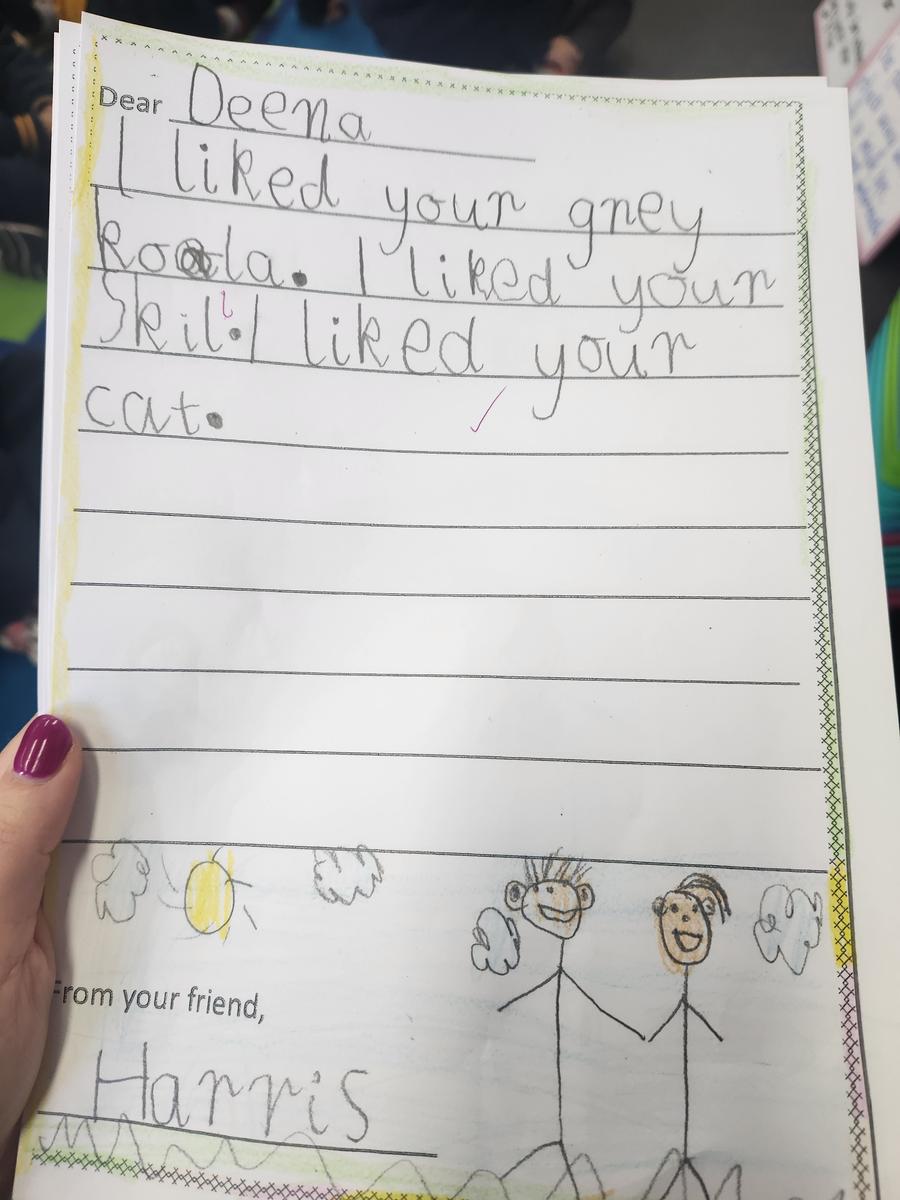 Dear Deena
I liked your grey
koala. I liked your
Skill. I liked your
cat.
From your friend,
Harris